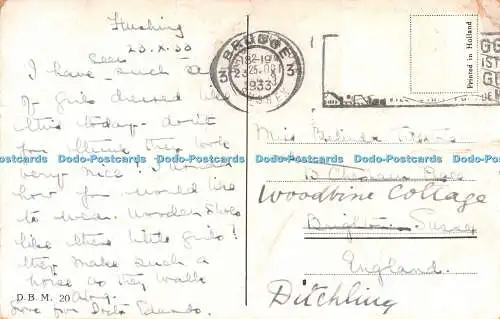 Flushing
23.X.33
seen
I have such a
of girls dressed like
this today - don't
you think they look
very nice. I wonder
how you would like
to wear wooden shoes
like these little girls!
they make such a
noise as they walk
along.
love from Doctor
D.B.M. 20
BRUGGE
3 3
18-19
1933
Printed in Holland
Miss Belinda
15
Woodbine Cottage
Brighton. Sussex
England.
Ditchling
Dodo-Postcards Dodo-Postcards Dodo-Postcards Dodo-Postcards Dodo-Postcards